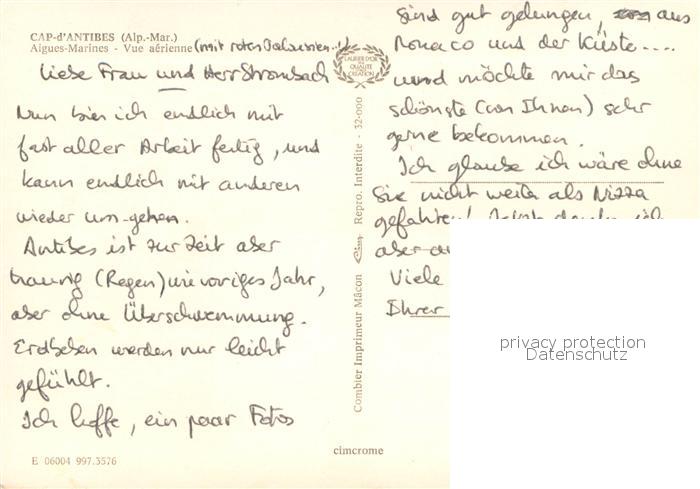 CAP-d'ANTIBES (Alp.-Mar.)
Aigues-Marines - Vue aérienne (mit roten
Liebe Frau und Herr Strombach
Nun bin ich endlich mit
fast aller Arbeit fertig, und
kann endlich mit anderen
wieder um-gehen.
Antibes ist zur Zeit aber
traurig (Regen) wie voriges Jahr,
aber ohne Überschwemmung.
Erdbeben werden nur leicht
gefühlt.
Ich hoffe, ein paar Fotos
E 06004 997.3576
LAURIER D'OR
DE
QUALITÉ
CRÉATION
Combier Imprimeur Mâcon Cim Repro. Interdite - 32-000
cimcrome
sind gut gelungen, aus
Monaco und der Küste....
und möchte mir das
schönste (von Ihnen) sehr
gerne bekommen.
Ich glaube ich wäre ohne
Sie nicht weiter als Nizza
gefahren! ich
aber
Viele
Ihrer
privacy protection
Datenschutz